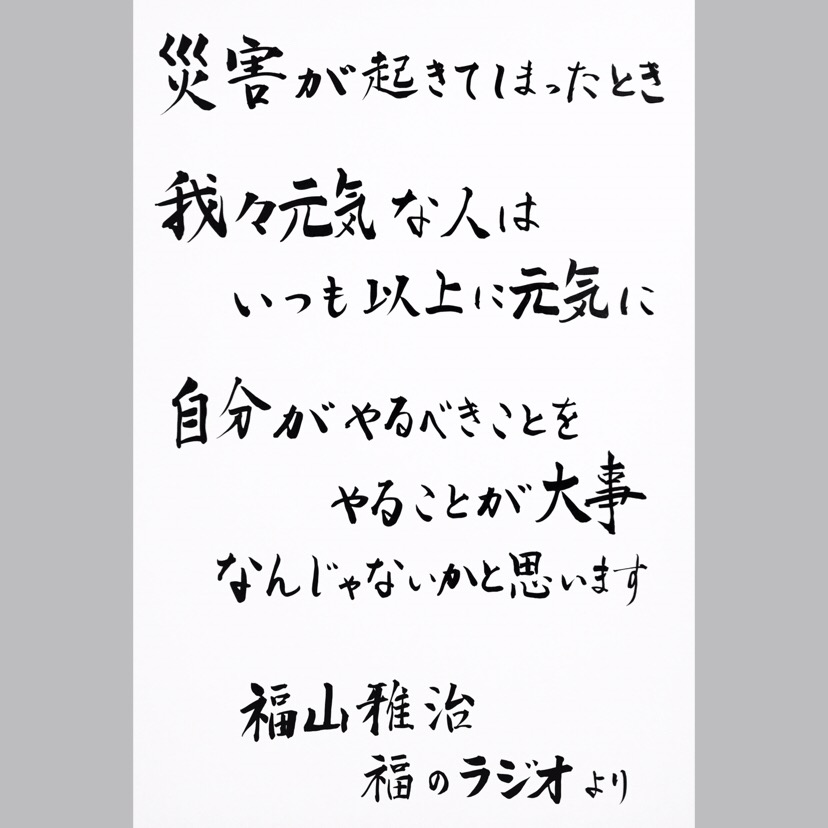 災害が起きてしまったとき
我々元気な人は
いつも以上に元気に
自分がやるべきことを
やることが大事
なんじゃないかと思います
福山雅治
福のラジオより